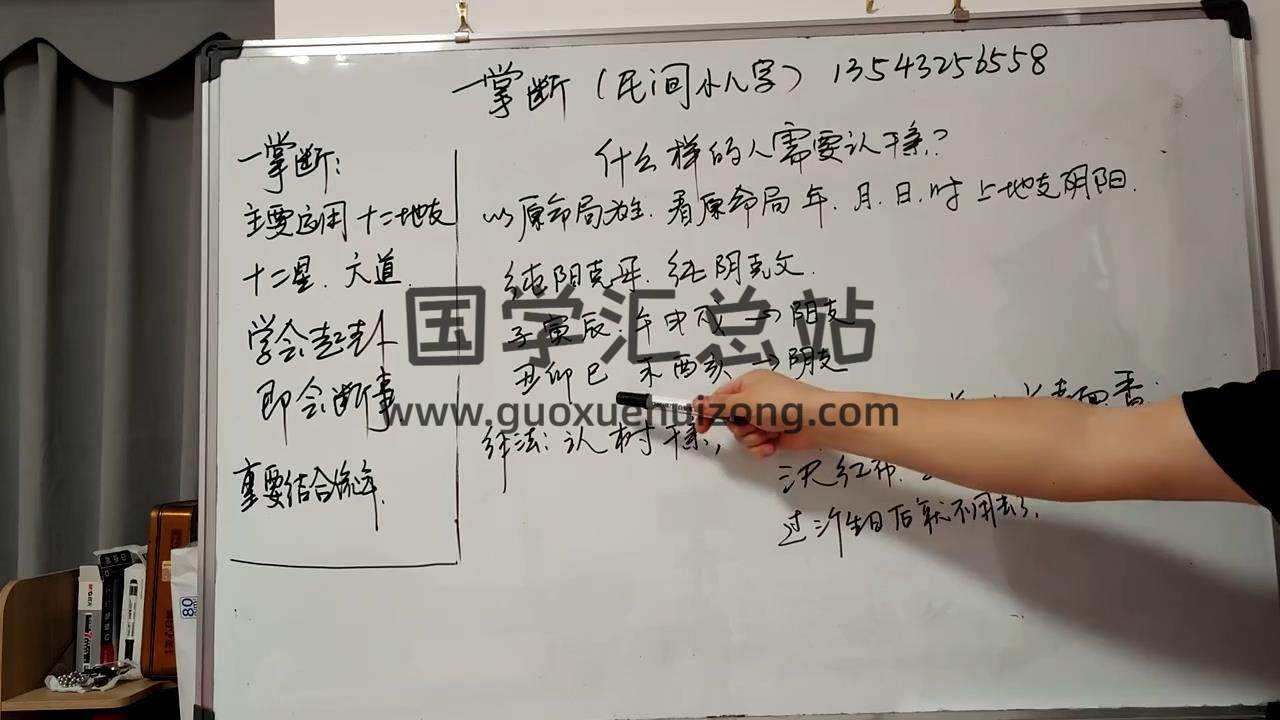 一掌断（民间小八字） 13543256558
什么样的人需要认干亲？
一掌断：
主要应用十二地支
十二星．六道．
学会起卦
即会断事
重要结合流年．
以原命局为主．看原命局 年．月．日．时 上地支阴阳．
纯阳克母．纯阴克父．
子寅辰．午申戌→阳支
丑卯巳 未酉亥→阴支
认树干亲，
红布．
过
生日后就不用去了．
国学汇总站
www.guoxuehuizong.com
80